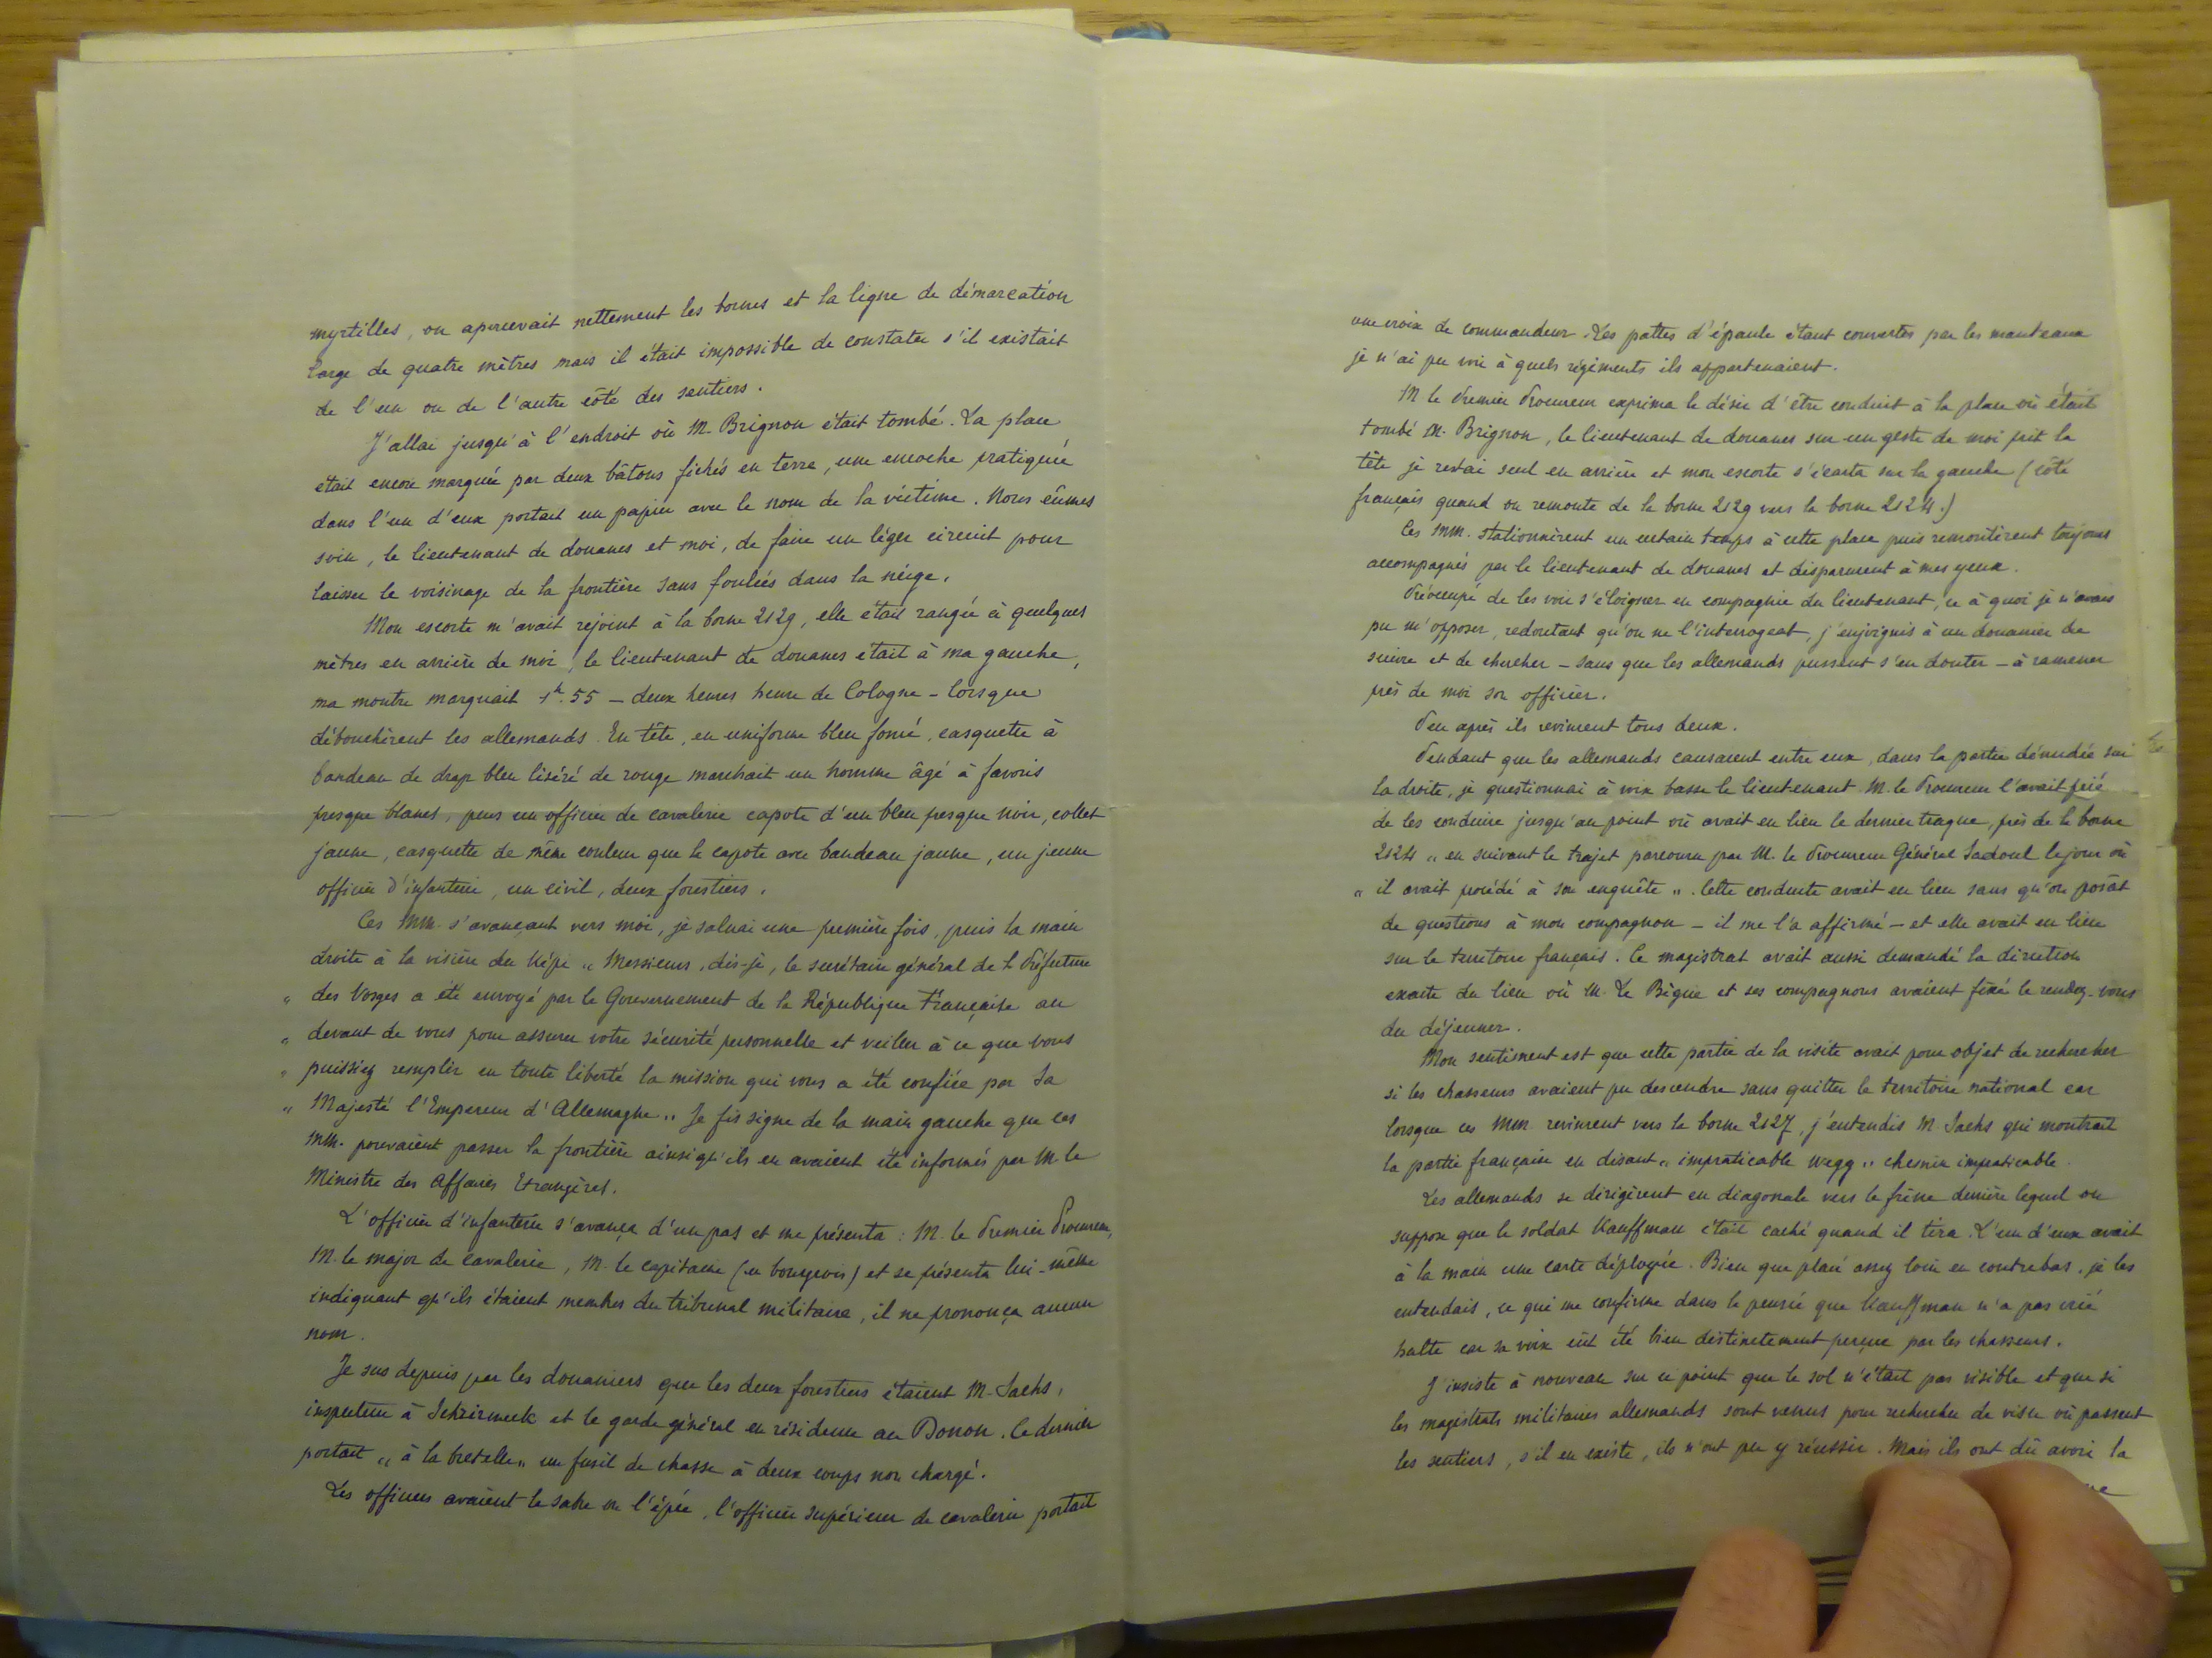 myrtilles, on apercevait nettement les bornes et la ligne de démarcation
large de quatre mètres mais il était impossible de constater s'il existait
de l'un ou de l'autre côté des sentiers.
J'allai jusqu'à l'endroit où M. Brignon était tombé. La place
était encore marquée par deux bâtons fichés en terre, une encoche pratiquée
dans l'un d'eux portait un papier avec le nom de la victime. Nous eûmes
soin, le lieutenant de douanes et moi, de faire un léger circuit pour
laisser le voisinage de la frontière sans foulées dans la neige.
Mon escorte m'avait rejoint à la borne 2129, elle était rangée à quelques
mètres en arrière de moi, le lieutenant de douanes était à ma gauche,
ma montre marquait 1h.55 – deux heures heure de Cologne – lorsque
débouchèrent les allemands. En tête, en uniforme bleu foncé, casquette à
bandeau de drap bleu liséré de rouge marchait un homme âgé à favoris
presque blancs, puis un officier de cavalerie capote d'un bleu presque noir, collet
jaune, casquette de même couleur que la capote avec bandeau jaune, un jeune
officier d'infanterie, un civil, deux forestiers.
Ces MM. s'avançant vers moi, je saluai une première fois, puis la main
droite à la visière du képi „ Messieurs, dis-je, le secrétaire général de la Préfecture
„ des Vosges a été envoyé par le Gouvernement de la République Française au
„ devant de vous pour assurer votre sécurité personnelle et veiller à ce que vous
„ puissiez remplir en toute liberté la mission qui vous a été confiée par Sa
„ Majesté l'Empereur d'Allemagne „. Je fis signe de la main gauche que ces
MM. pouvaient passer la frontière ainsi qu'ils en avaient été informés par M. le
Ministre des Affaires Etrangères.
L'officier d'infanterie s'avança d'un pas et me présenta : M. le Premier Procureur,
M. le major de cavalerie, M. le capitaine (en bourgeois) et se présenta lui-même
indiquant qu'ils étaient membres du tribunal militaire, il ne prononça aucun
nom.
Je sus depuis par les douaniers que les deux forestiers étaient M. Sachs,
inspecteur à Schirmeck et le garde général en résidence au Donon. Ce dernier
portait „ à la bretelle „ un fusil de chasse à deux coups non chargé.
Les officiers avaient le sabre ou l'épée, l'officier supérieur de cavalerie portait
une croix de commandeur. Les pattes d'épaule étant couvertes par les manteaux
je n'ai pu voir à quels régiments ils appartenaient.
M le Premier Procureur exprima le désir d'être conduit à la place où était
tombé M. Brignon, le lieutenant de douanes sur un geste de moi prit la
tête je restai seul en arrière et mon escorte s'écarta sur la gauche (côté
français quand on remonte de la borne 2129 vers la borne 2124.)
Ces MM. stationnèrent un certain temps à cette place puis remontèrent toujours
accompagnés par le lieutenant de douanes et disparurent à mes yeux.
Préoccupé de les voir s'éloigner en compagnie du lieutenant, ce à quoi je n'avais
pu m'opposer, redoutant qu'on ne l'interrogeat, j'enjoignis à un douanier de
suivre et de chercher – sans que les allemands pussent s'en douter – à ramener
près de moi son officier.
Peu après ils revinrent tous deux.
Pendant que les allemands causaient entre eux, dans la partie dénudée sur
la droite, je questionnai à voix basse le lieutenant. M. le Procureur l'avait prié
de les conduire jusqu'au point où avait eu lieu la dernière traque, près de la borne
2124 „ en suivant le trajet parcouru par M. le Procureur Général Sadoul le jour où
„ il avait procédé à son enquête „. Cette conduite avait eu lieu sans qu'on posât
de questions à mon compagnon – il me l'a affirmé – et elle avait eu lieu
sur le territoire français. Ce magistrat avait aussi demandé la direction
exacte du lieu où M. Le Bègue et ses compagnons avaient fixé le rendez-vous
du déjeuner.
Mon sentiment est que cette partie de la visite avait pour objet de rechercher
si les chasseurs avaient pu descendre sans quitter le territoire national car
lorsque ces MM revinrent vers la borne 2127, j'entendis M. Sachs qui montrait
la partie française en disant „ impraticable wegg „ chemin impraticable.
Les allemands se dirigèrent en diagonale vers le frêne derrière lequel on
suppose que le soldat Kauffman était caché quand il tira. L'un d'eux avait
à la main une carte déployée. Bien que placé assez loin en contrebas, je les
entendais, ce qui me confirme dans la pensée que Kauffman n'a pas crié
halte car sa voix eût été bien distinctement perçue par les chasseurs.
J'insiste à nouveau sur ce point que le sol n'était pas visible et que si
les magistrats militaires allemands sont venus pour rechercher de visu où passent
les sentiers, s'il en existe, ils n'ont pu y réussir. Mais ils ont dû avoir la